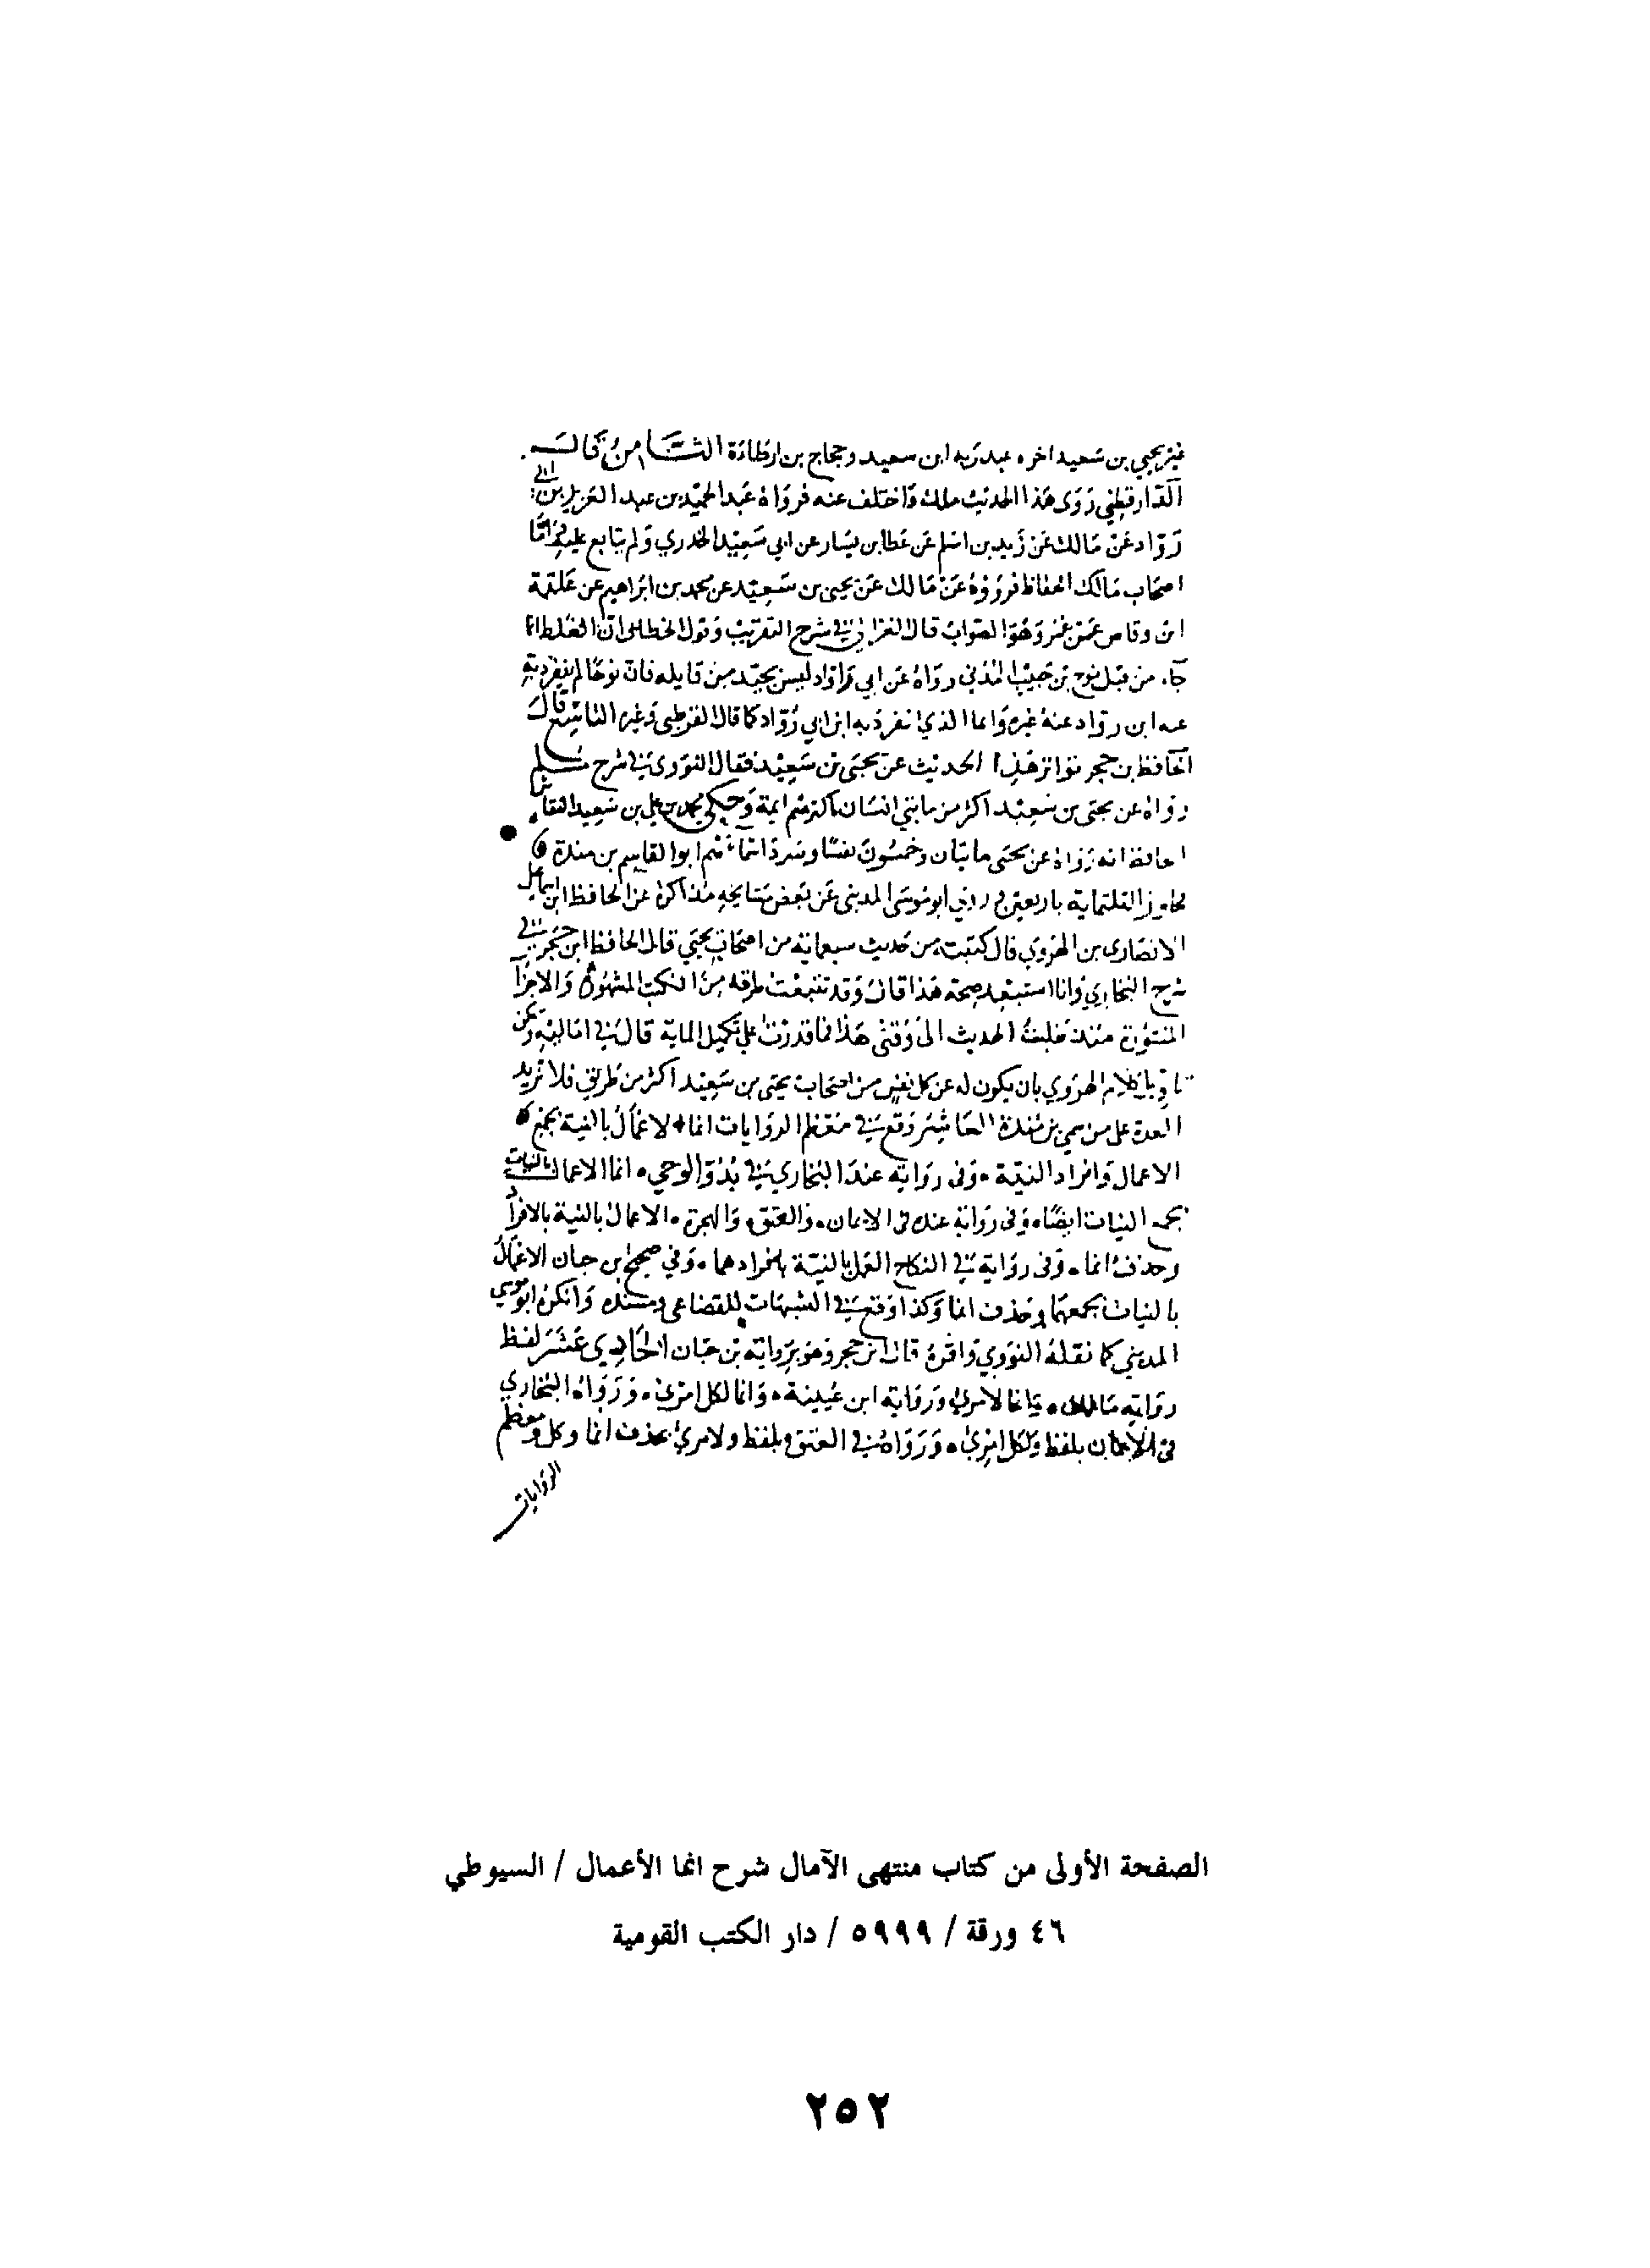 غير يحيى بن سعيد اخوه عبد ربه ابن سعيد وحجاج بن ارطاة الثامن قال
الدارقطني روى هذا الحديث مالك واختلف عنه فرواه عبد الحميد بن عبد العزيز بن ابي
رواد عن مالك عن زيد بن اسلم عن عطا بن يسار عن ابي سعيد الخدري ولم يتابع عليه واما
اصحاب مالك الحفاظ فرووه عن مالك عن يحيى بن سعيد عن محمد بن ابراهيم عن علقمة
ابن وقاص عن عمر وهو الصواب قال العراقي في شرح التقريب وقول الخطابي ان الغلط انما
جاء من قبل نوح بن حبيب الذي رواه عن ابي رواد ليس بجيد من قايله فان نوحا لم ينفرد به
عنه ابن رواد عنه غيره وانما الذي انفرد به ابن ابي رواد كما قال القرطبي وغيره التاسع قال
الحافظ بن حجر تواتر هذا الحديث عن يحيى بن سعيد فقال النووي في شرح مسلم
رواه عن يحيى بن سعيد اكثر من مايتي انسان اكثرهم ايمة وحكى محمد بن علي بن سعيد النقاش
الحافظ انه رواه عن يحيى مايتان وخمسون نفسا وسرد اسماءهم ابو القاسم بن مندة
فجاوز الثلثماية باربعين وروي ابو موسى المديني عن بعض مشايخه مذاكرة عن الحافظ ابن اسماعيل
الانصاري بن الهروي قال كتبت من حديث سبعماية من اصحاب يحيى قال الحافظ ابن حجر في
شرح البخاري وانا استبعد صحة هذا قال وقد تتبعت طرقه من الكتب المشهورة والاجزا
المنثورة منذ طلبت الحديث الى وقتي هذا فما قدرت على تكميل الماية قال في اماليه ويمكن
تاويل كلام الهروي بان يكون له عن كل نفس من اصحاب يحيى بن سعيد اكثر من طريق فلا تزيد
العدة على من سمى بن مندة العاشر وقع في معظم الروايات انما الاعمال بالنية بجمع
الاعمال وافراد النية وفي رواية عند البخاري في بدو الوحي انما الاعمال بالنيات
بجمع النيات ايضا وفي رواية عنده في الايمان والعتق والهجرة الاعمال بالنية بالافراد
وحذف انما وفي رواية في النكاح العمل بالنية بافرادهما وفي صحيح بن حبان الاعمال
بالنيات بجمعهما وحذف انما وكذا وقع في الشهاب للقضاعي ومسنده وانكره ابو موسى
المديني كما نقله النووي واقره قال ابن حجر وهو برواية بن حبان الحادي عشر لفظ
رواية مالك وانما لامرئ ورواية ابن عيينة وانما لكل امرئ ورواه البخاري
في الايمان بلفظ ولكل امرئ ورواه في العتق بلفظ ولامرئ بحذف انما وكل ومعظم
الروايات
الصفحة الأولى من كتاب منتهى الآمال شرح انما الأعمال / السيوطي
٤٦ ورقة / ٥٩٩٩ / دار الكتب القومية
٢٥٢